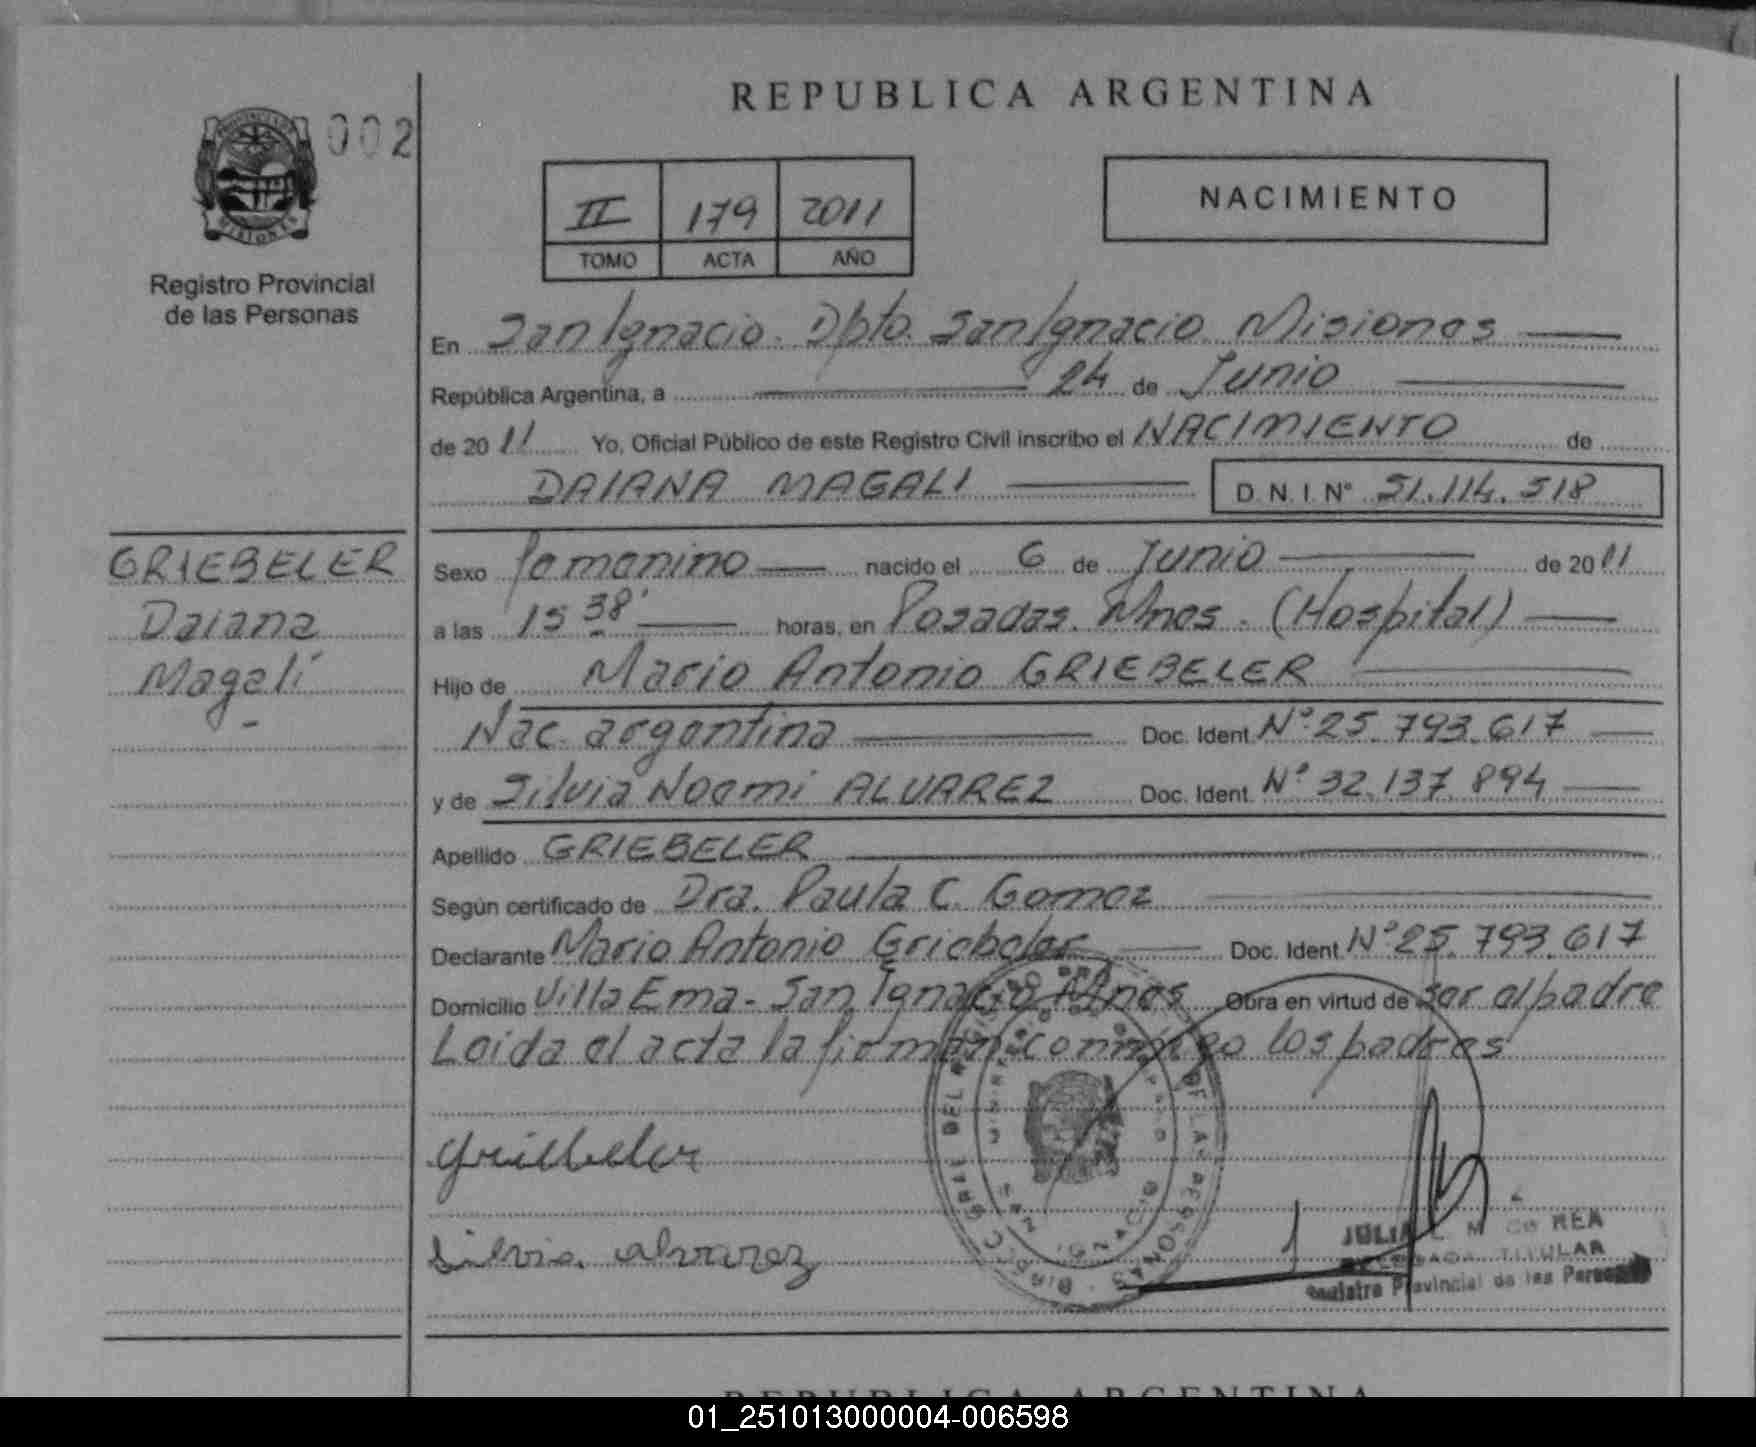 REPUBLICA ARGENTINA
002
II 179 2011
TOMO ACTA AÑO
NACIMIENTO
Registro Provincial
de las Personas
En San Ignacio. Dpto. San Ignacio. Misiones
República Argentina, a 24 de Junio
de 2011 Yo, Oficial Público de este Registro Civil inscribo el NACIMIENTO de
DAIANA MAGALI D.N.I. Nº 51.114.518
GRIEBELER
Daiana
Magalí
Sexo femenino nacido el 6 de Junio de 2011
a las 15 38' horas, en Posadas. Mnes. (Hospital)
Hijo de Mario Antonio GRIEBELER
Nac. argentina Doc. Ident. Nº 25.793.617
y de Silvia Noemi ALVAREZ Doc. Ident. Nº 32.137.894
Apellido GRIEBELER
Según certificado de Dra. Paula C. Gomez
Declarante Mario Antonio Griebeler Doc. Ident. Nº 25.793.617
Domicilio Villa Ema - San Ignacio Mnes Obra en virtud de ser el padre
Leida el acta la firman conmigo los padres
Griebeler
Silvia alvarez
TITULAR
Registro Provincial de las Personas
REPUBLICA ARGENTINA
01_251013000004-006598